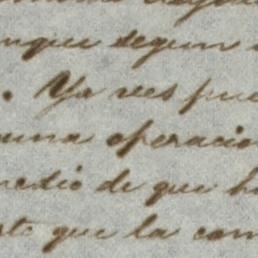 nque segun
. Ya ves pue
una operacio
medio de que h
sto que la com